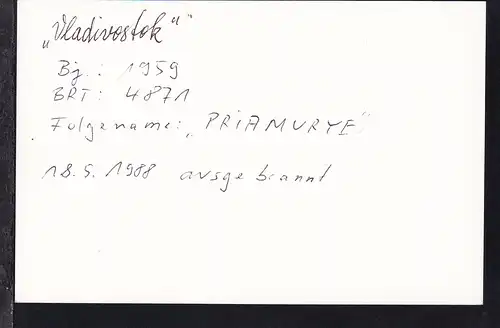 „Vladivostok“
Bj.: 1959
BRT: 4871
Folgename: „PRIAMURYE“
18.5.1988 ausgebrannt